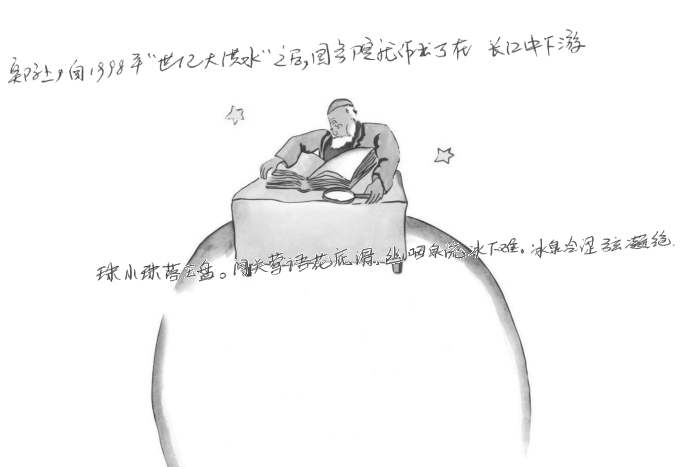 实际上,自1998年“世纪大洪水”之后,国务院就作出了在 长江中下游
珠小珠落玉盘。间关莺语花底滑,幽咽泉流冰下难。冰泉冷涩弦凝绝,